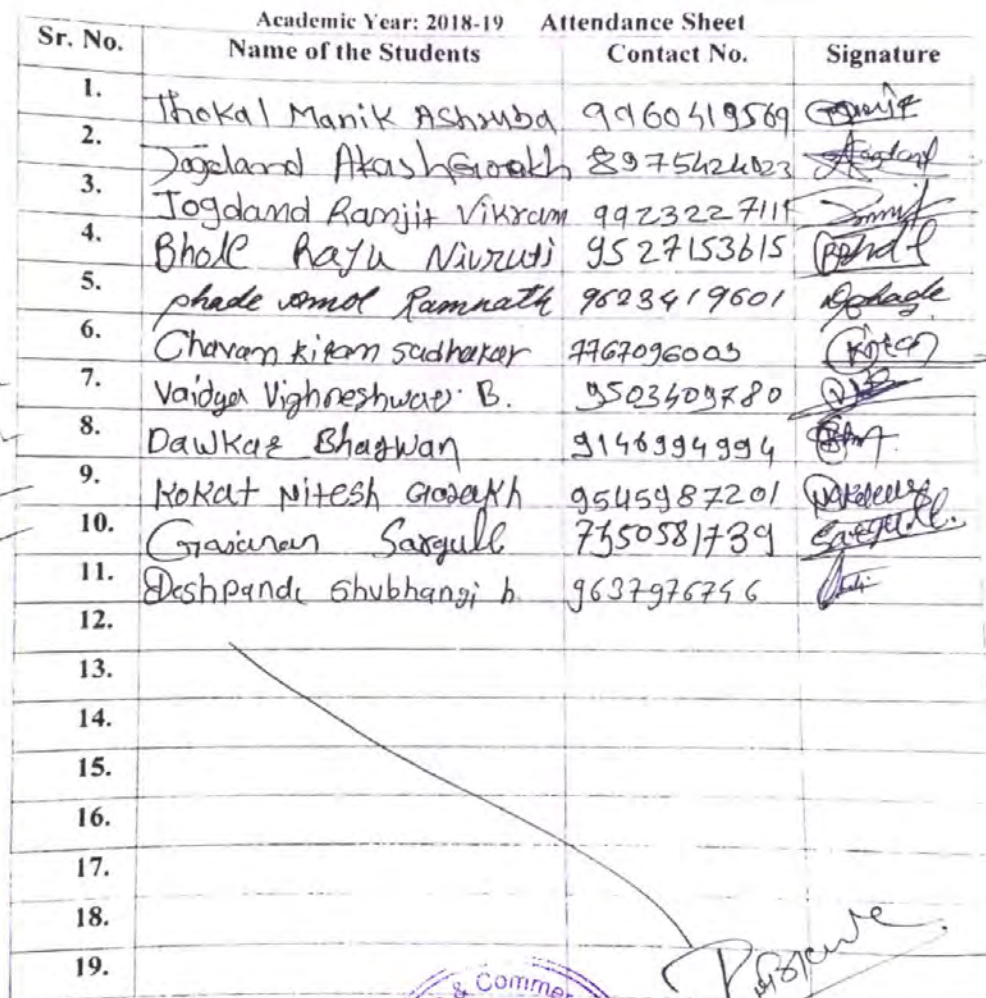 Academic Year: 2018-19 Attendance Sheet
Sr. No. Name of the Students Contact No. Signature
1. Thokal Manik Ashruba 9960419569
2. Jogdand Akash Gorakh 8975424023
3. Jogdand Ramjit Vikram 9923227111
4. Bhole Raju Nivruti 9527153615
5. phade Ramnath 9623419601
6. Chavan kiran sadhakar 7767096003
7. Vaidya Vighneshwar B. 9503409780
8. Dawkar Bhagwan 9146994994
9. Kokat Nitesh Gorakh 9545987201
10. Gajanan Sargull 7350581739
11. Deshpande Shubhangi h. 9637976746
12.
13.
14.
15.
16.
17.
18.
19.
& Comme